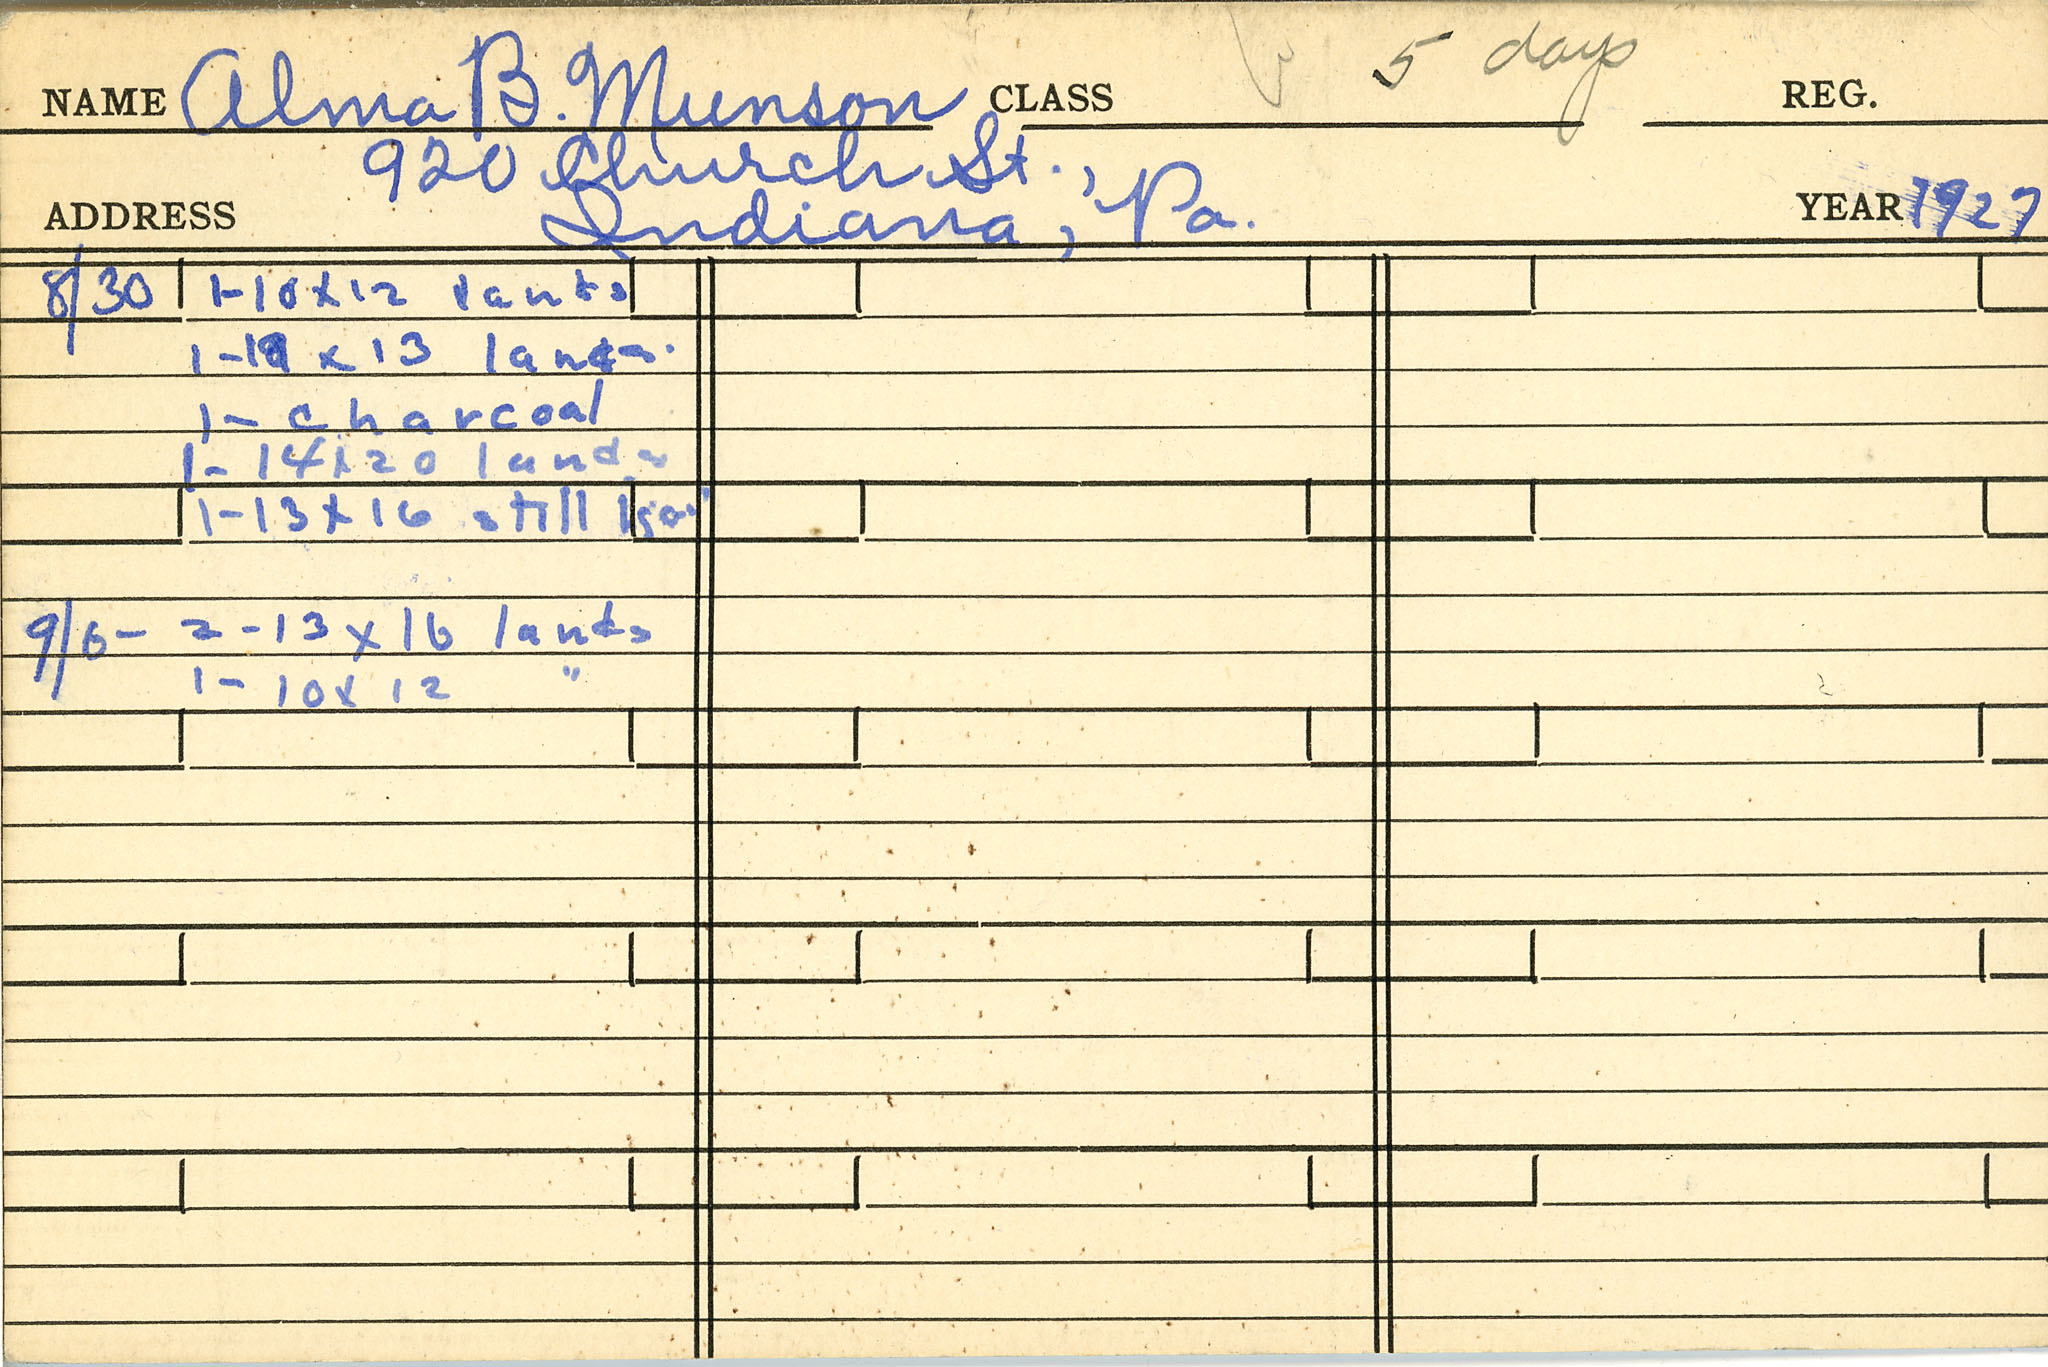 NAME Alma B. Munson CLASS 5 days REG.
920 Church St.,
ADDRESS Indiana, Pa. YEAR 1927
8/30 1-10x12 lands
1- x 13 lands.
1- charcoal
1- 14x20 lands
1-13x16 still
9/6- 2-13x16 lands
1- 10x12 "